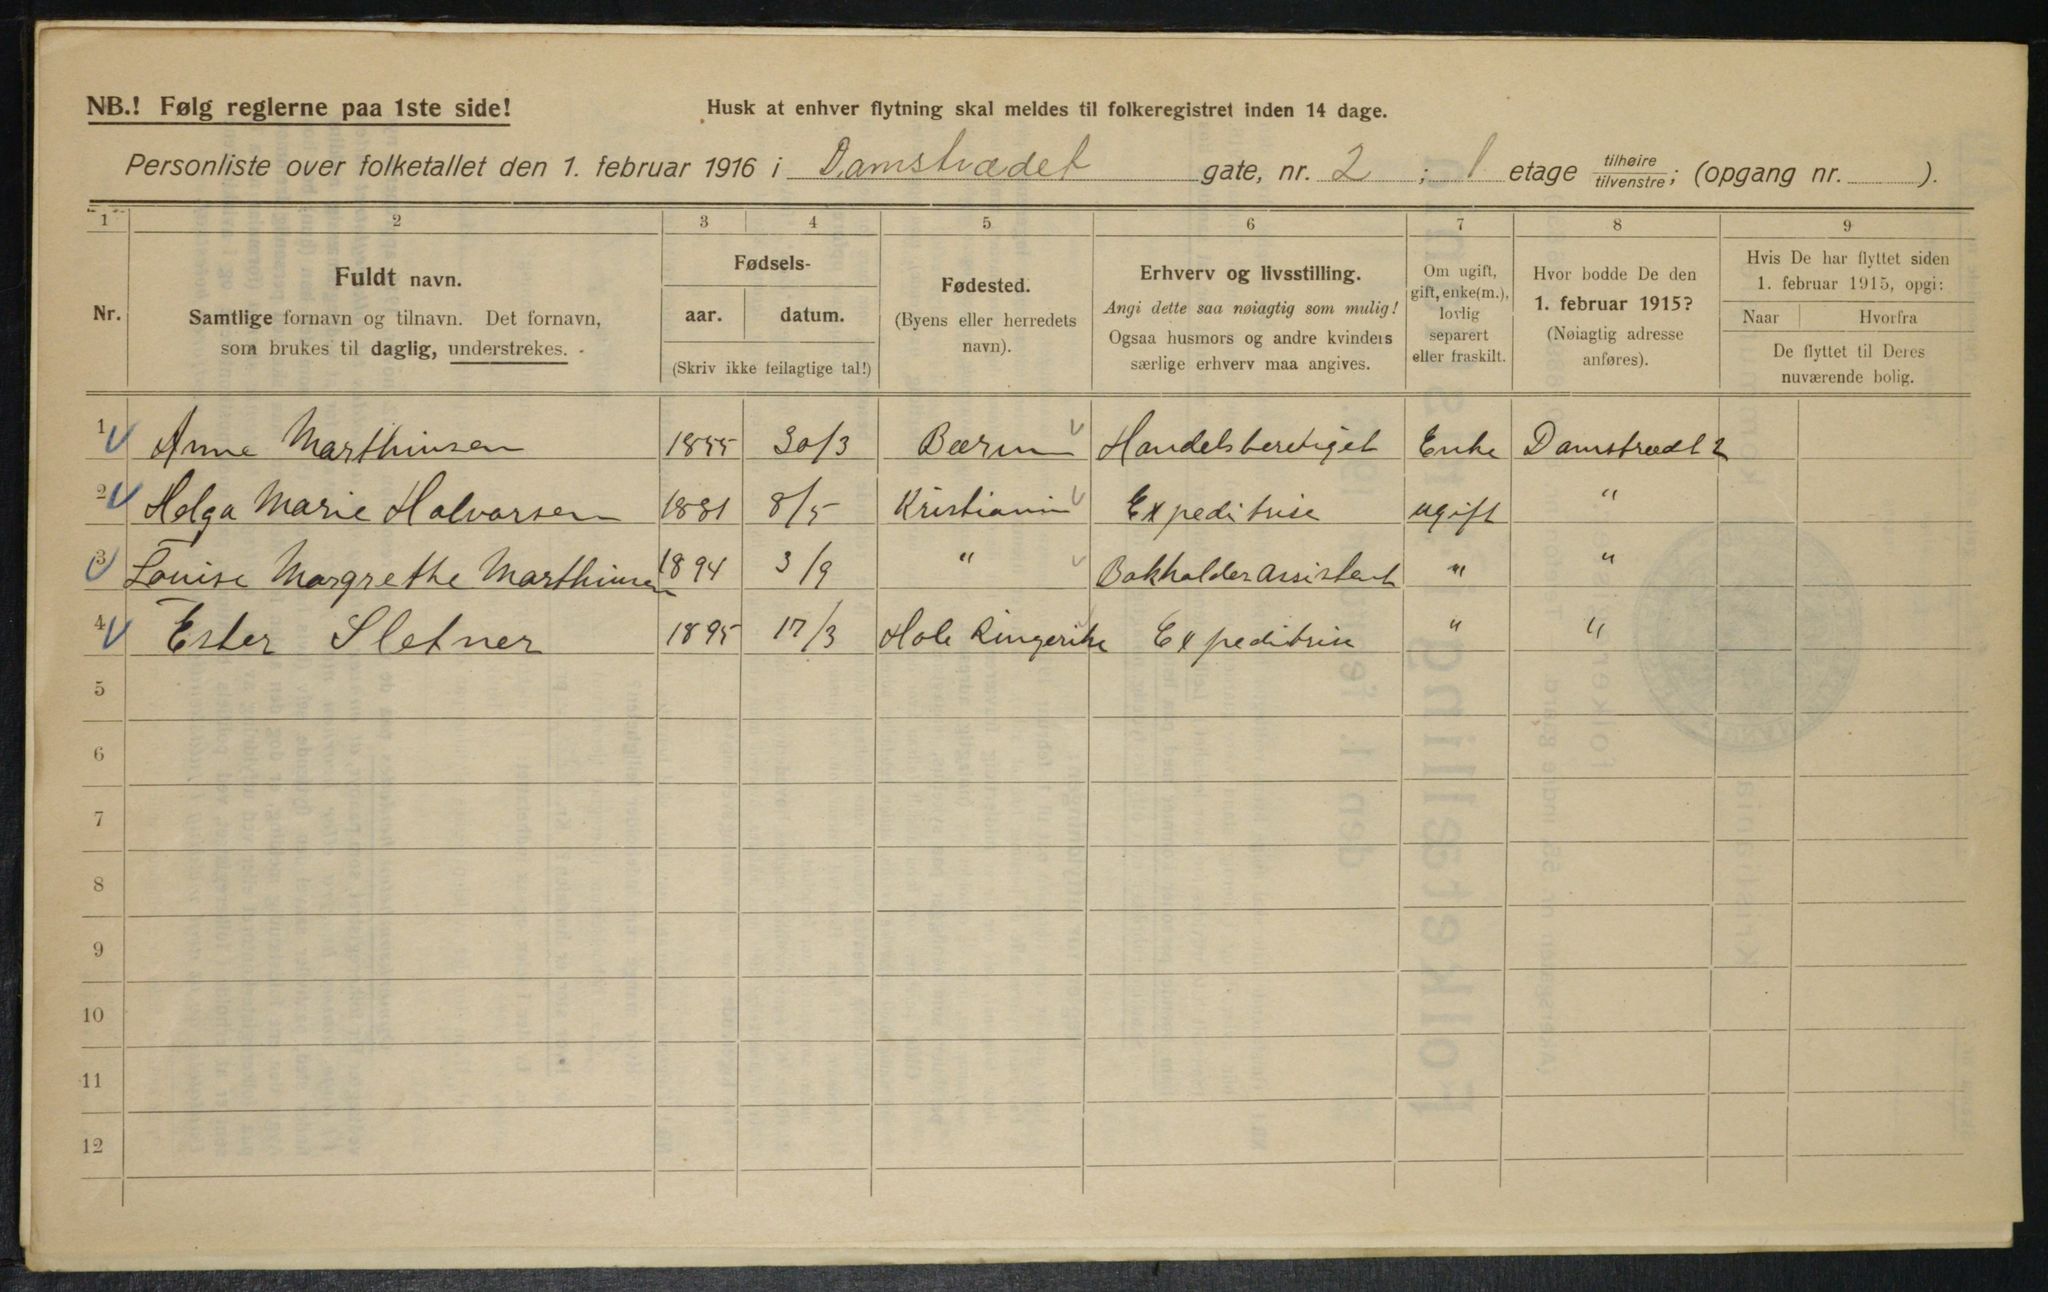 NB.! Følg reglerne paa 1ste side!
Husk at enhver flytning skal meldes til folkeregistret inden 14 dage.
Personliste over folketallet den 1. februar 1916 i Damstrædet gate, nr. 2 ; 1 etage tilhøire tilvenstre ; (opgang nr. ).
1 2 3 4 5 6 7 8 9
Nr.
Fuldt navn.
Samtlige fornavn og tilnavn. Det fornavn,
som brukes til daglig, understrekes.
Fødsels-
aar. datum.
(Skriv ikke feilagtige tal!)
Fødested.
(Byens eller herredets
navn).
Erhverv og livsstilling.
Angi dette saa nøiagtig som mulig!
Ogsaa husmors og andre kvinders
særlige erhverv maa angives.
Om ugift,
gift, enke(m.),
lovlig
separert
eller fraskilt.
Hvor bodde De den
1. februar 1915?
(Nøiagtig adresse
anføres).
Hvis De har flyttet siden
1. februar 1915, opgi:
Naar Hvorfra
De flyttet til Deres
nuværende bolig.
1 Anne Marthinsen 1855 30/3 Bærum Handelsberetiget Enke Damstrædt 2
2 Helga Marie Halvorsen 1881 8/5 Kristiania Expeditrise ugift "
3 Louise Margrethe Marthinsen 1894 3/9 " Bokholder Assistent " "
4 Ester Sletner 1895 17/3 Hole Ringerike Expeditrise " "
5
6
7
8
9
10
11
12